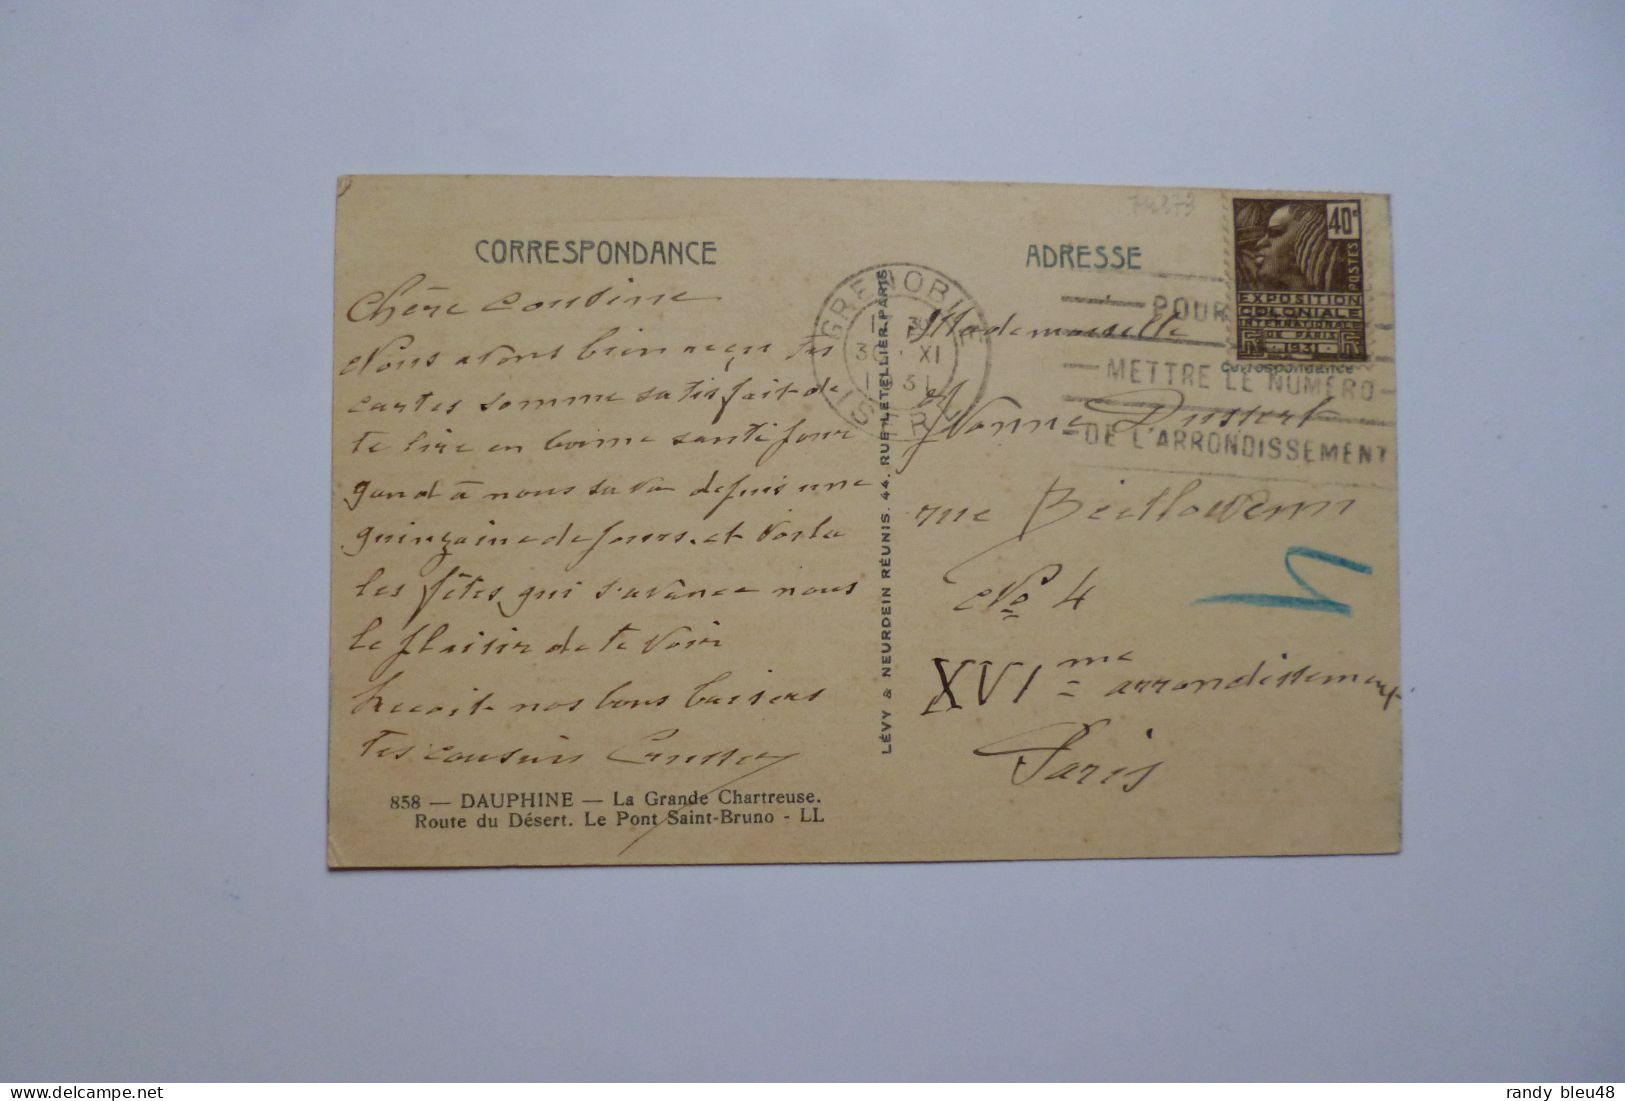 74273
CORRESPONDANCE
ADRESSE
40c
POSTES
EXPOSITION
COLONIALE
INTERNATIONALE
DE PARIS
1931
GRENOBLE
30 XI
31
ISERE
POUR
METTRE LE NUMERO
DE L'ARRONDISSEMENT
correspondance
Chère cousine
Nous avons bien reçu tes
cartes somme satisfait de
te lire en bonne santé pour
gand à nous sa va depuis une
quinzaine de jours. et voila
les fêtes qui s'avance nous
le plaisir de te voir
Recoit nos bons baisers
tes cousins
858 — DAUPHINE — La Grande Chartreuse.
Route du Désert. Le Pont Saint-Bruno - LL
LÉVY & NEURDEIN RÉUNIS. 44. RUE LETELLIER. PARIS
Mademoiselle
Yvonne Dussert
rue Beethowenn
No 4
XVIme arrondissement
Paris
randy bleu48